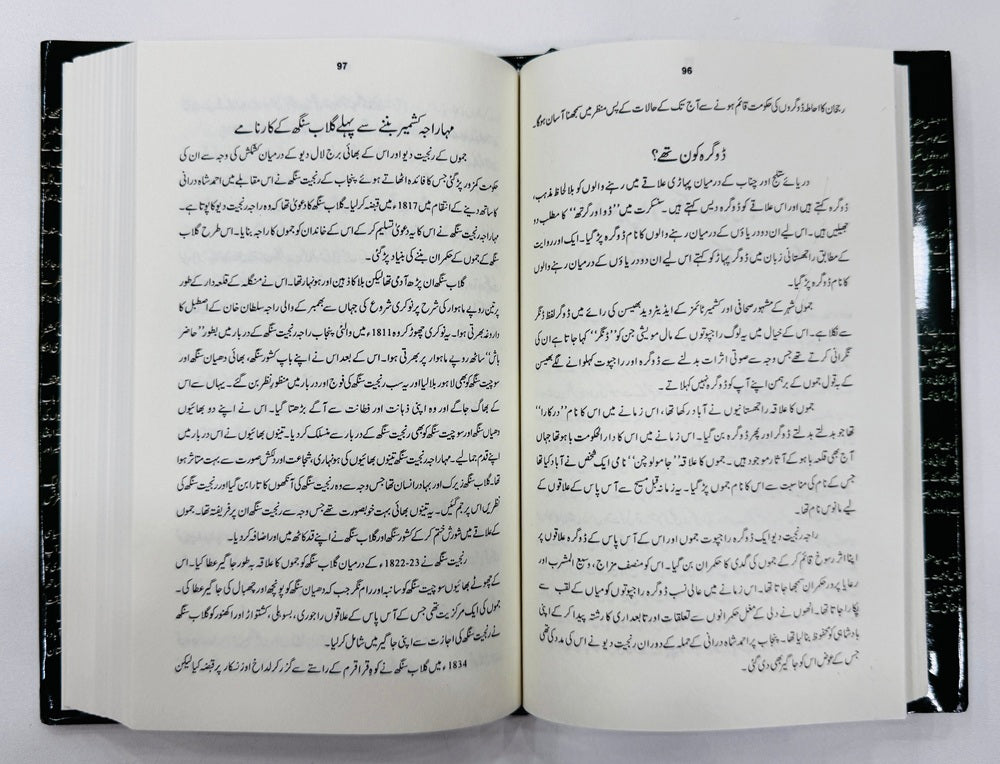 96
رجحان کا احاطہ ڈوگروں کی حکومت قائم ہونے سے آج تک کے حالات کے پس منظر میں سمجھنا آسان ہوگا۔
ڈوگرہ کون تھے؟
دریائے ستلج اور چناب کے درمیان پہاڑی علاقے میں رہنے والوں کو بلا لحاظ مذہب،
ڈوگرہ کہتے ہیں اور اس علاقے کو ڈوگرہ دیس کہتے ہیں۔ سنسکرت میں ”ڈو اور گرتھ“ کا مطلب دو
جھیلیں ہے۔ اس لیے ان دو دریاؤں کے درمیان رہنے والوں کا نام ڈوگرہ پڑ گیا۔ ایک اور روایت
کے مطابق راجھستانی زبان میں ڈوگر پہاڑ کو کہتے اس لیے ان دو دریاؤں کے درمیان رہنے والوں
کا نام ڈوگرہ پڑ گیا۔
جموں شہر کے مشہور صحافی اور کشمیر ٹائمز کے ایڈیٹر وید بھسین کی رائے میں ڈوگر لفظ ڈنگر
سے نکلا ہے۔ اس کے خیال میں یہ لوگ راجپوتوں کے مال مویشی جن کو ”ڈنگر“ کہا جاتا ہے ان کی
نگرانی کرتے تھے جس وجہ سے صوتی اثرات بدلنے سے ڈوگرہ اور راجپوت کہلوانے لگے بھیسن
کے بقول جموں کے برہمن اپنے آپ کو ڈوگرہ نہیں کہلاتے۔
جموں کا علاقہ راجھستانیوں نے آباد رکھا تھا، اس زمانے میں اس کا نام ”درکارا“
تھا جو بدلتے بدلتے ڈوگر اور پھر ڈوگرہ بن گیا۔ اس زمانے میں اس کا دارالحکومت باہو تھا جہاں
آج بھی قلعہ باہو کے آثار موجود ہیں۔ جموں کا علاقہ ”جامولوچن“ نامی ایک شخص نے آباد کیا تھا
جس کے نام کی مناسبت سے اس کا نام جموں پڑ گیا۔ یہ زمانہ قبل مسیح سے آس پاس کے علاقوں کے
لیے مانوس نام تھا۔
راجہ رنجیت دیو ایک ڈوگرہ راجپوت جموں اور اس کے آس پاس کے ڈوگرہ علاقوں پر
اپنا اثر رسوخ قائم کر کے جموں کی گدی کا حکمران بن گیا۔ اس کو منصف مزاج، وسیع المشرب اور
رعایا پرور حکمران سمجھا جاتا تھا۔ اس زمانے میں عالی نسب ڈوگرہ راجپوتوں کو میاں کے لقب سے
پکارا جاتا تھا۔ انھوں نے دلی کے مغل حکمرانوں سے تعلقات اور تابعداری کا رشتہ پیدا کر کے اپنی
بادشاہی کو محفوظ بنا لیا تھا۔ پنجاب پر احمد شاہ درانی کے حملہ کے دوران رنجیت دیو نے اس کی مدد کی تھی
جس کے عوض اس کو جاگیر بھی دی گئی۔
97
مہاراجہ کشمیر بننے سے پہلے گلاب سنگھ کے کارنامے
جموں کے رنجیت دیو اور اس کے بھائی برج لال دیو کے درمیان کشمکش کی وجہ سے ان کی
حکومت کمزور پڑ گئی جس کا فائدہ اٹھاتے ہوئے پنجاب کے رنجیت سنگھ نے اس مقابلے میں احمد شاہ درانی
کا ساتھ دینے کے انتقام میں 1817ء میں قبضہ کر لیا۔ گلاب سنگھ کا دعویٰ تھا کہ وہ راجہ رنجیت دیو کا پوتا ہے۔
مہاراجہ رنجیت سنگھ نے اس کا یہ دعویٰ تسلیم کر کے اس کے خاندان کو جموں کا راجہ بنایا۔ اس طرح گلاب
سنگھ کے جموں کے حکمران بننے کی بنیاد پڑ گئی۔
گلاب سنگھ ان پڑھ آدمی تھا لیکن بلا کا ذہین اور ہونہار تھا۔ اس نے منگلہ کے قلعدار کے طور
پر تین روپے ماہوار کی شرح پر نوکری شروع کی جہاں سے بھمبر کے والی راجہ سلطان خان کے اصطبل کا
داروغہ بھرتی ہوا۔ یہ نوکری چھوڑ کر وہ 1811ء میں والئی پنجاب راجہ رنجیت سنگھ کے دربار میں بطور ”حاضر
باش“ ساتھ روپے ماہوار پر بھرتی ہوا۔ اس کے بعد اس نے اپنے باپ کشور سنگھ، بھائی دھیان سنگھ اور
سوچیت سنگھ کو بھی لاہور بلا لیا اور یہ سب رنجیت سنگھ کی فوج اور دربار میں منظور نظر بن گئے۔ یہاں سے اس
کے بھاگ جاگے اور وہ اپنی ذہانت اور فطانت سے آگے بڑھتا گیا۔ اس نے اپنے دو بھائیوں
دھیاں سنگھ اور سوچیت سنگھ کو بھی رنجیت سنگھ کے دربار سے منسلک کر دیا۔ تینوں بھائیوں نے اس دربار میں
اپنے قدم جما لیے۔ مہاراجہ رنجیت سنگھ تینوں بھائیوں کی ہونہاری، شجاعت اور دلکش صورت سے بہت متاثر ہوا
تھا۔ گلاب سنگھ زیرک اور بہادر انسان تھا جس وجہ سے وہ رنجیت سنگھ کی آنکھوں کا تارا بن گیا اور رنجیت سنگھ کی
نظریں اس پر جم گئیں۔ یہ تینوں بھائی بہت خوبصورت تھے جس وجہ سے رنجیت سنگھ ان پر فریفتہ تھا۔ جموں
کے علاقے میں شورش ختم کر کے کشور سنگھ اور گلاب سنگھ نے اپنے قد کاٹھ میں اور اضافہ کر دیا۔
رنجیت سنگھ نے 23-1822ء کے درمیان گلاب سنگھ کو جموں کا علاقہ بہ طور جاگیر عطا کیا۔ اس
کے چھوٹے بھائیوں سوچیت سنگھ کو سانبہ اور رام نگر جب کہ دھیان سنگھ کو پونچھ اور چھبال کی جاگیر عطا کی۔
جموں کی ایک مرکزیت تھی جس کے آس پاس کے علاقوں راجوری، بسوہلی، کشتواڑ اور اکھنور کو گلاب سنگھ
نے رنجیت سنگھ کی اجازت سے اپنی جاگیر میں شامل کر لیا۔
1834ء میں گلاب سنگھ نے کوہ قراقرم کے راستے سے گزر کر لداخ اور زنسکار پر قبضہ کیا لیکن